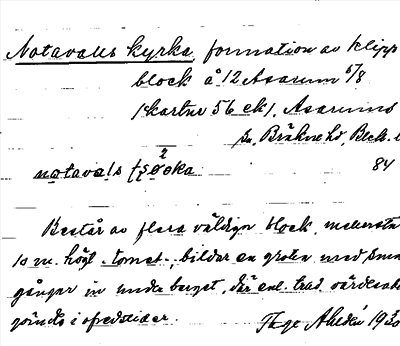 Notavalls kyrka, formation av klipp
block å 12 Asarum 6/8
(kartnr 56 ek), Asarums
sn, Bräkne hd, Blek. l
84
notavals
Består av flera väldiga block,
10 m. högt tornet, bildar en grotta med
gånger in under berget, där enl. trad. värdesak
gömdes i ofredstider. Thage Ahldén 1930